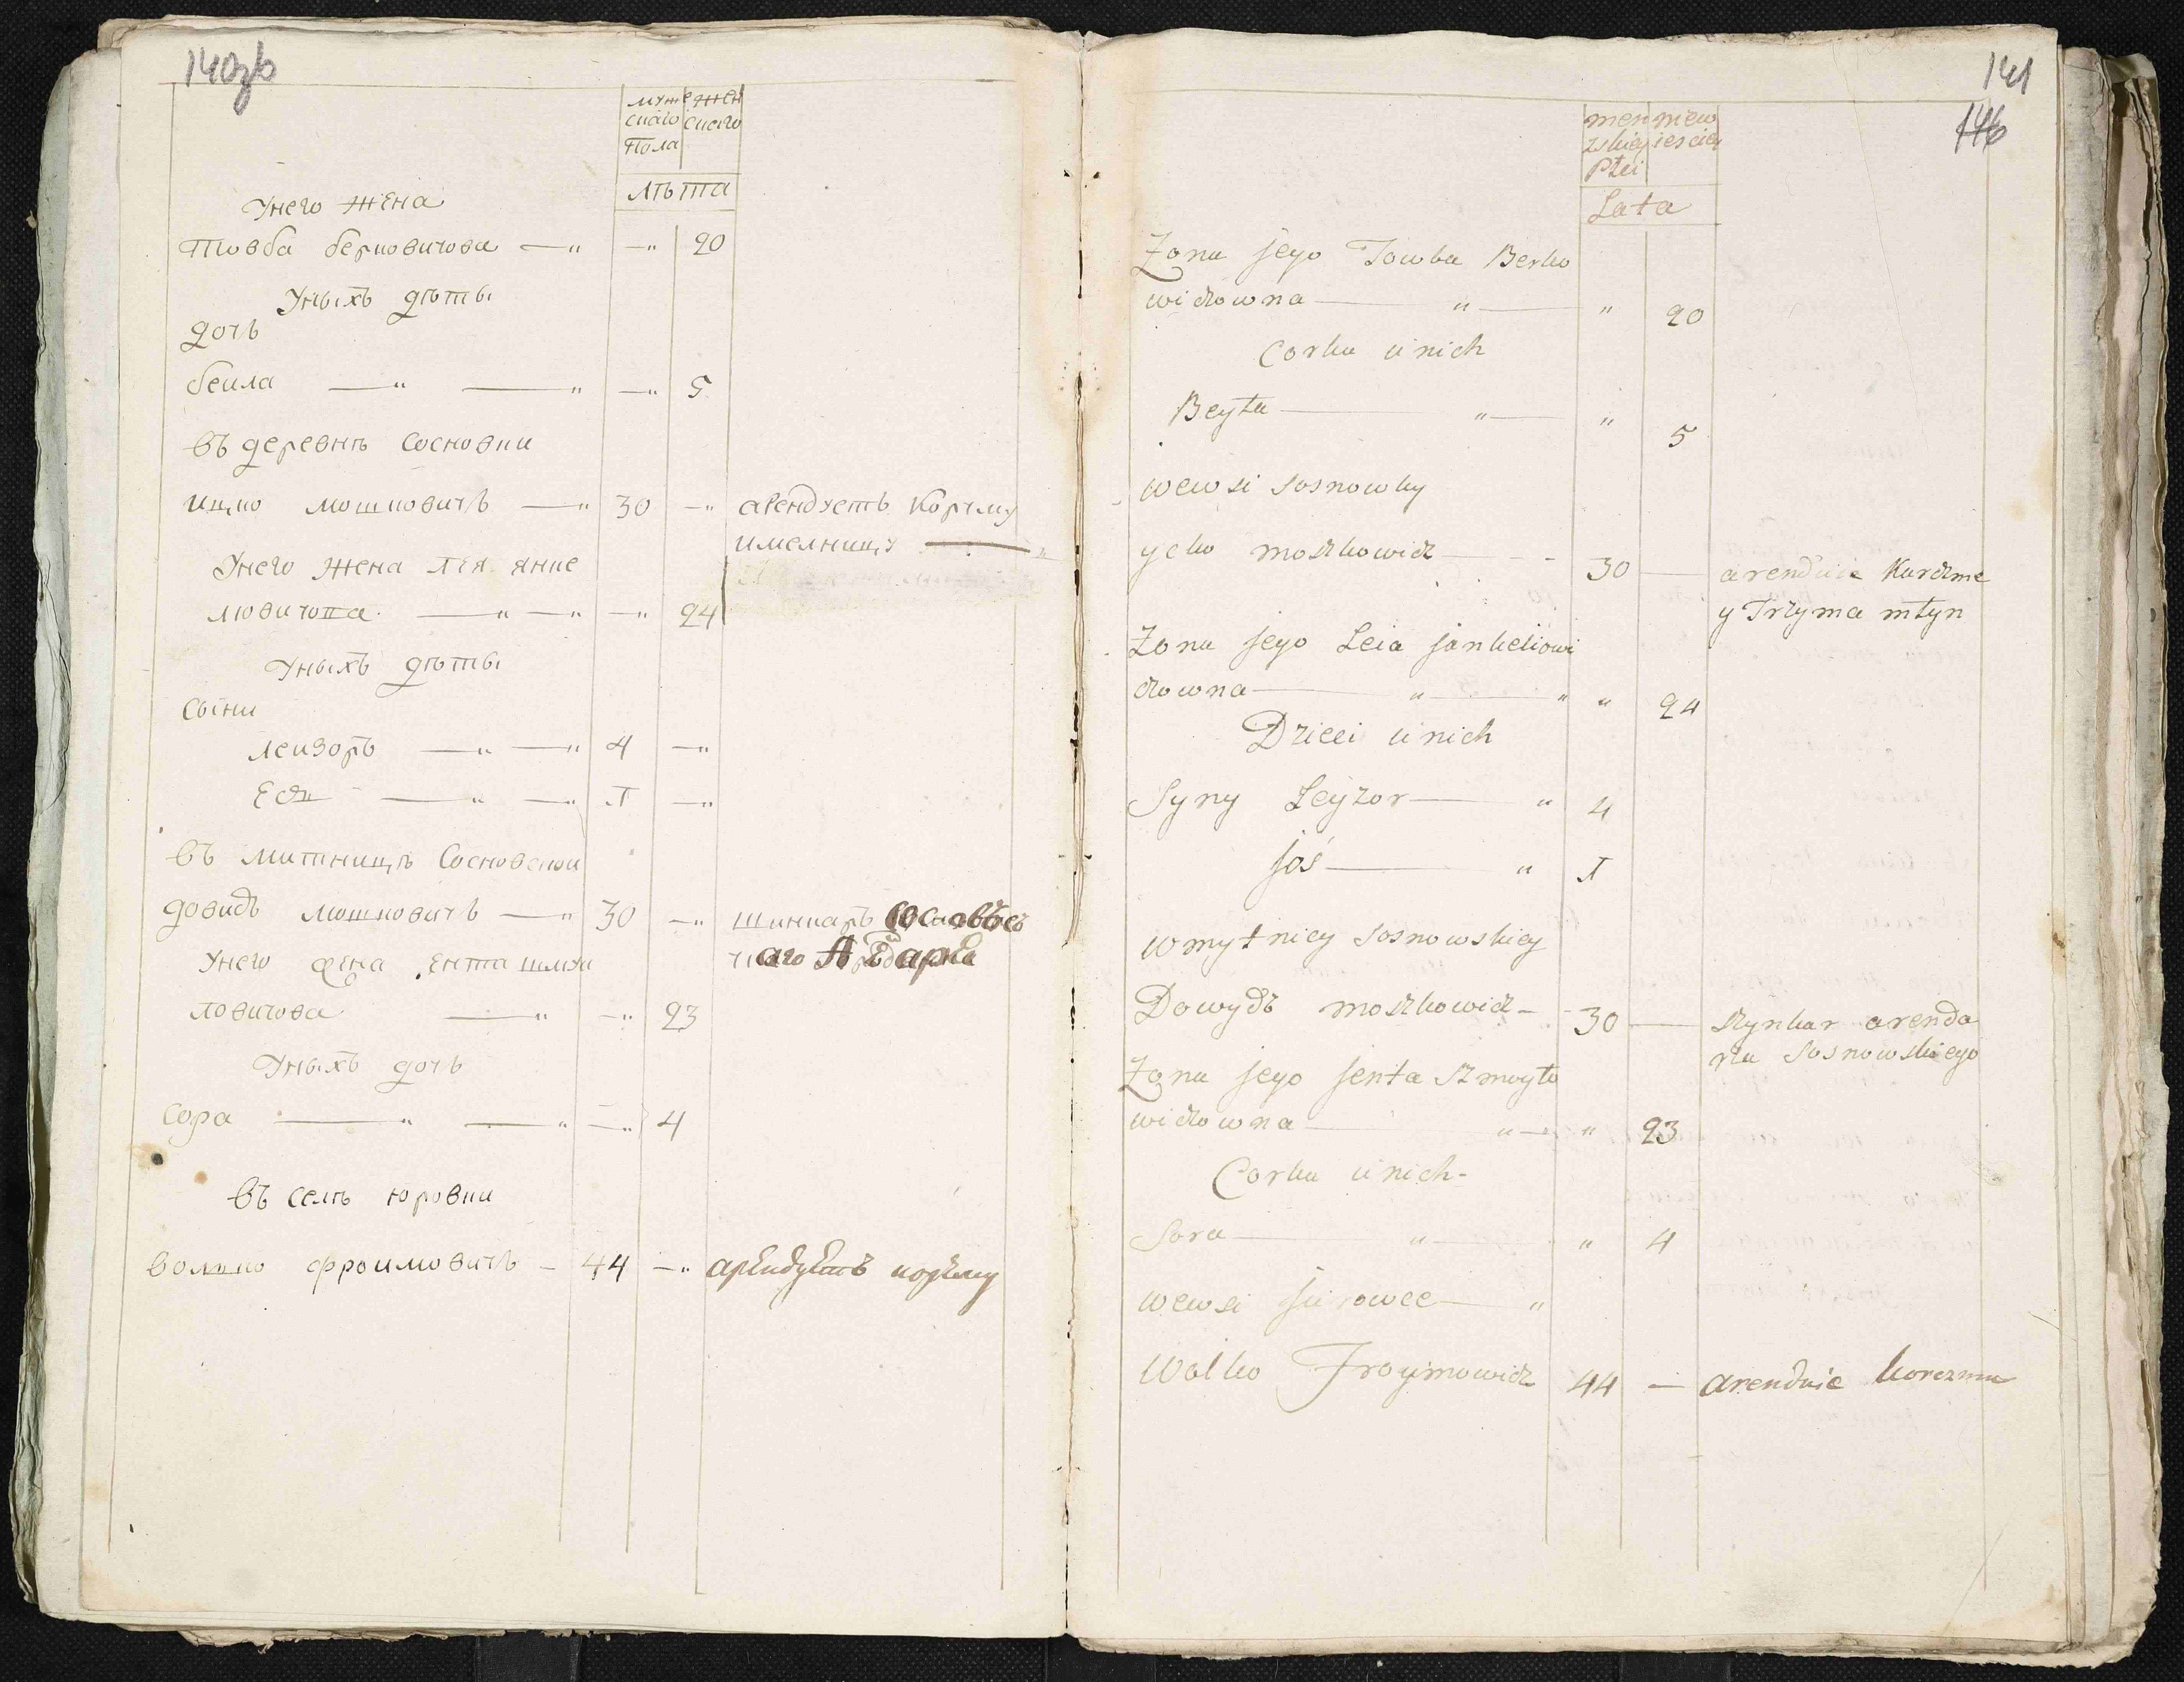 140зв
муже жен
скаго скаго
Пола
лѣта
Унего жена
товба берковичова — 20
Уныхъ дѣты
дочь
беила — 5
въ деревнѣ Сосновки
ицко мошковичъ — 30 — арендуетъ Корчму
имелницу
Унего жена лея янке
Лювичова — 24
Уныхъ дѣты
Сыни
Леизоръ — 4 —
Еся — 1 —
въ митницѣ Сосновскои
довидъ мошковичъ — 30 — шинкаръ
Унего жена ента шмуи
ловичова — 23
Уныхъ дочъ
Сора — 4
въ селѣ юровки
волко фроимовичъ — 44 — арендуетъ корчму
141
146
men niew
zskiey iesciey
Płci
Lata
Zona jego Towba Berko
wiczowna — " — " 20
Corka u nich
Beyła — " — " 5
wewsi Sosnowky
ycko moszkowicz — 30 — arenduie Karczme
y Trzyma młyn
Zona jego Leia jankeliowi
czowna — " — " " 24
Dzieci u nich
Syny Leyzor — " 4
joś — " 1
wmytnicy Sosnowskiey
Dowydъ moszkowicz — 30 — szynkar arenda
rza Sosnowskiego
Zona jego jenta Szmoyło
wiczowna — " — " 23
Corka u nich -
Sora — " — " 4
wewsi jurowce — "
Wolko Froymowicz 44 — arenduie korczmu